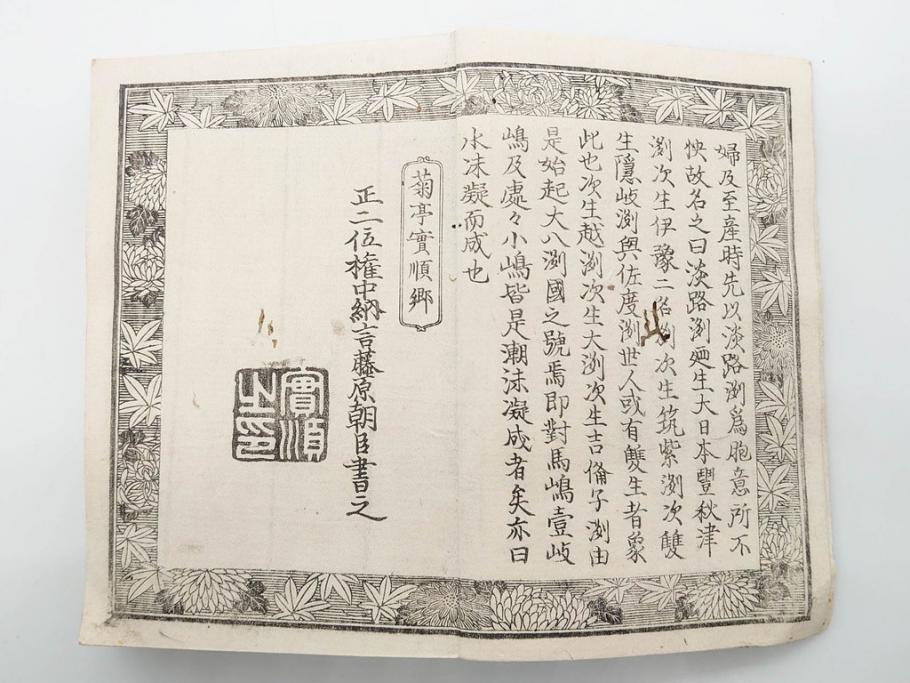 婦及至産時先以淡路洲爲胞意所不
快故名之曰淡路洲廼生大日本豐秋津
洲次生伊豫二名洲次生筑紫洲次雙
生隱岐洲與佐度洲世人或有雙生者象
此也次生越洲次生大洲次生吉備子洲由
是始起大八洲國之號焉即對馬嶋壹岐
嶋及處々小嶋皆是潮沫凝成者矣亦曰
水沫凝而成也
菊亭實順郷
正二位權中納言藤原朝臣書之
實順
之印